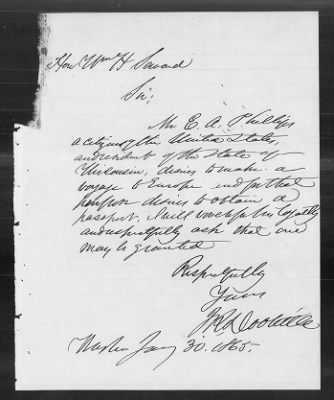 Hon. Wm H Seward
Sir;
Mr E. A. Phillips
a citizen of the United States,
and resident of the State of
Wisconsin, desires to make a
voyage to Europe and for that
purpose desires to obtain a
passport, I will vouch for his loyalty
and respectfully ask that one
may be granted
Respectfully
Yours
J R Doolittle
Washn Jany 30. 1865.